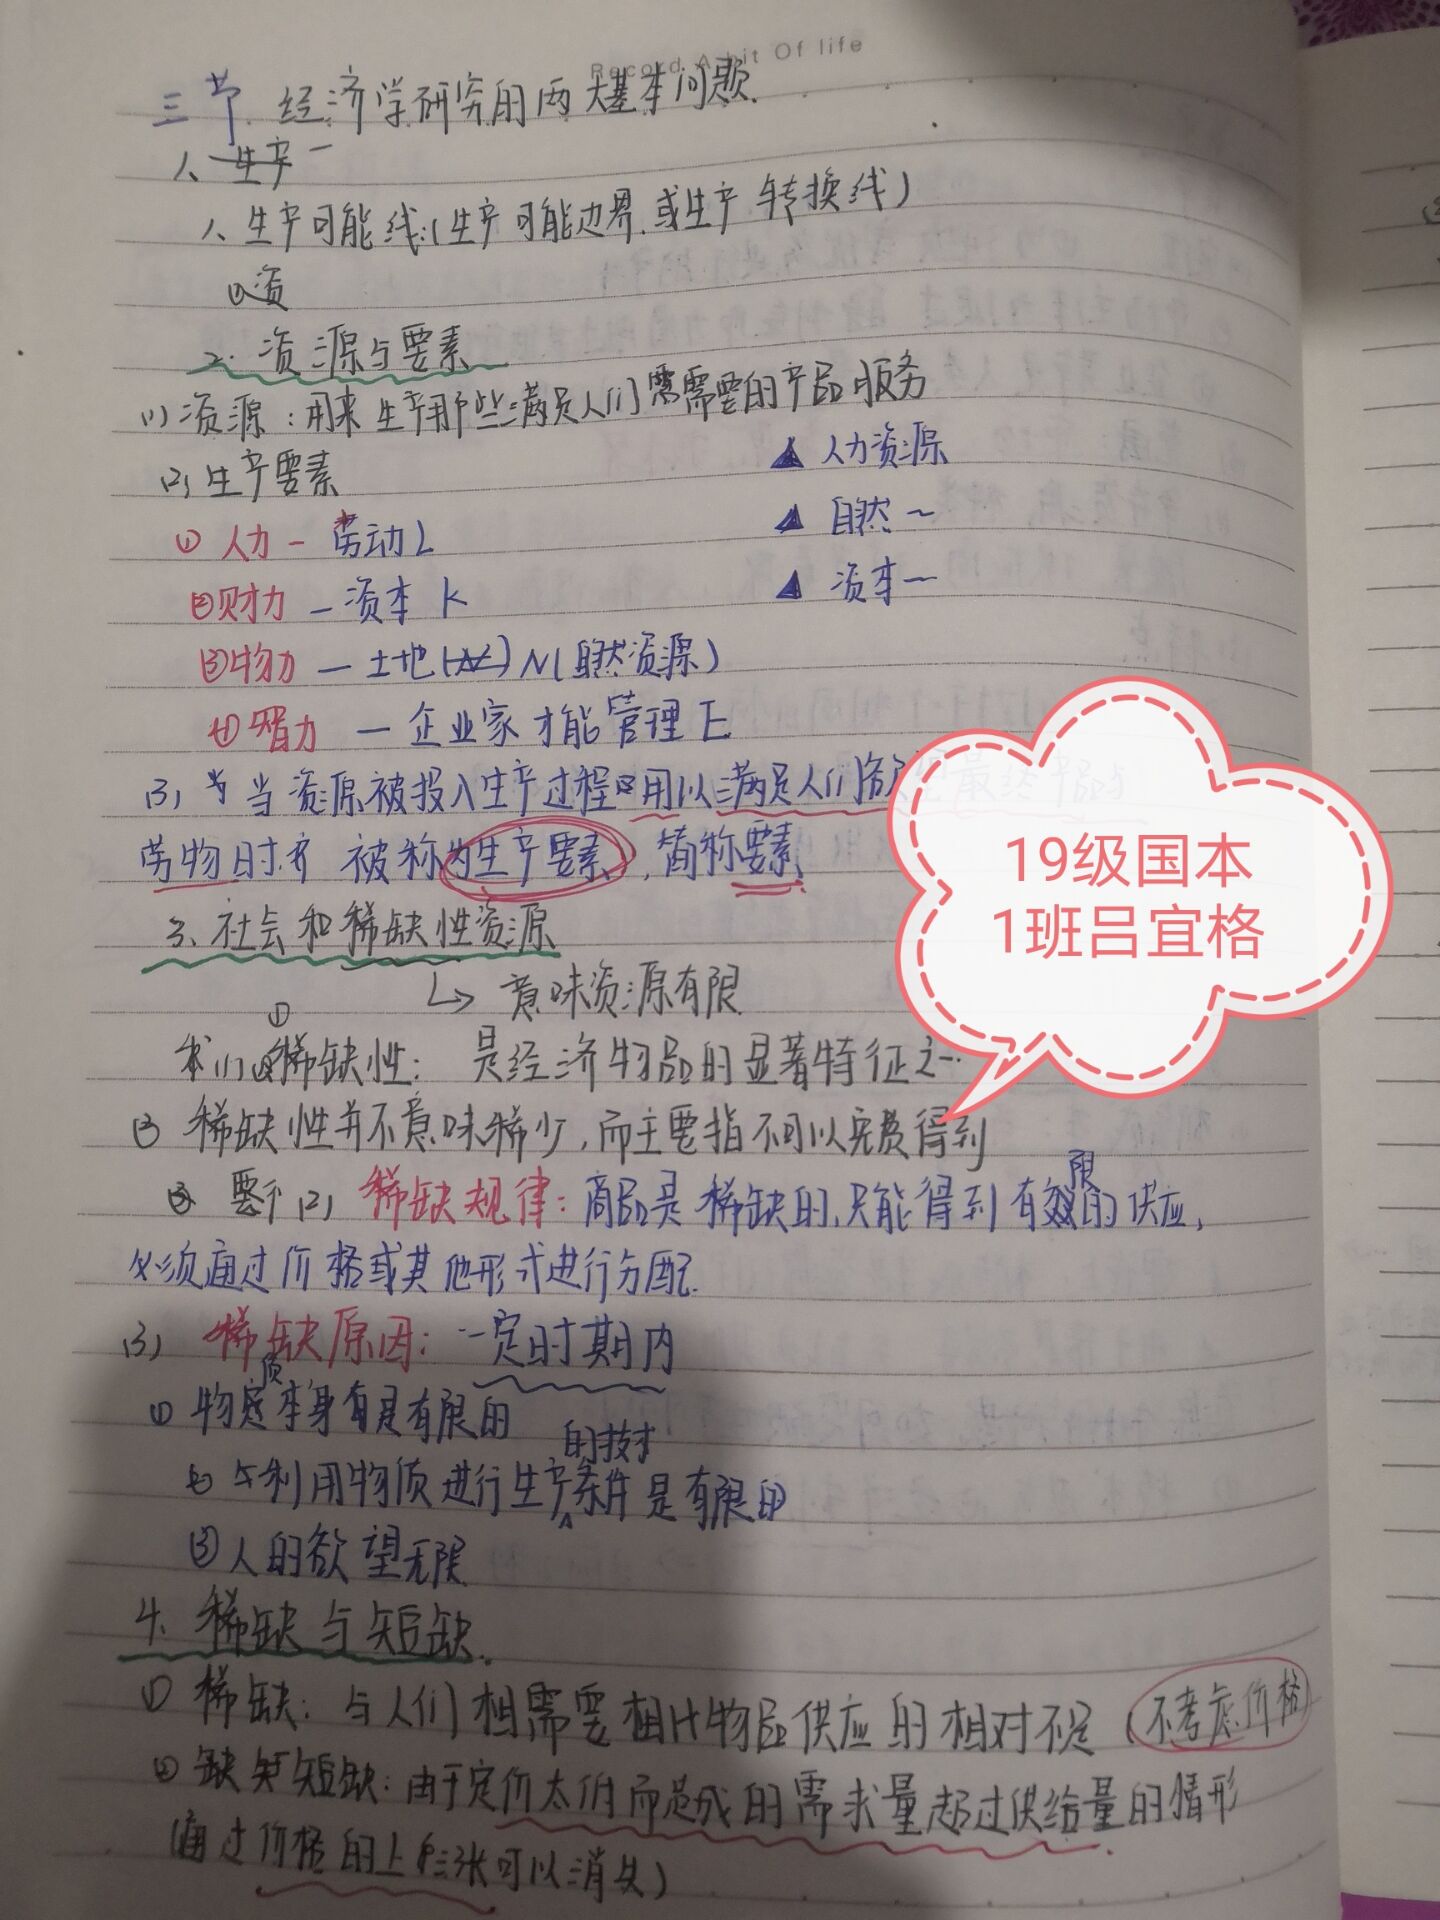 Record A bit Of life
三节 经济学研究的两大基本问题.
一、生产一
1、生产可能线:(生产可能边界.或生产转换线)
①资
2. 资源与要素
(1)资源:用来生产那些满足人们需需要的产品服务
(2)生产要素
▲人力资源
①人力 - 劳动L
▲自然~
②财力 - 资本K
▲资本~
③物力 - 土地(N)N(自然资源)
④智力 - 企业家才能管理E
(3)当当资源被投入生产过程用以满足人们
最终产品与
劳物时才被称为生产要素,简称要素
3、社会和稀缺性资源
↳意味资源有限
我们 ①稀缺性:是经济物品的显著特征之一.
② 稀缺性并不意味稀少,而主要指不可以免费得到
③ 要 (2) 稀缺规律:商品是稀缺的,只能得到有限的供应,
必须通过价格或其他形式进行分配.
(3) 稀缺原因:一定时期内
①物质本身有是有限的
②利用物质进行生产的技术条件是有限的
③人的欲望无限
4. 稀缺与短缺.
① 稀缺:与人们相需要相比物品供应的相对不足(不考虑价格)
② 缺短缺:由于定价太低而造成的需求量超过供给量的情形
(通过价格的上涨可以消失)
19级国本
1班吕宜格